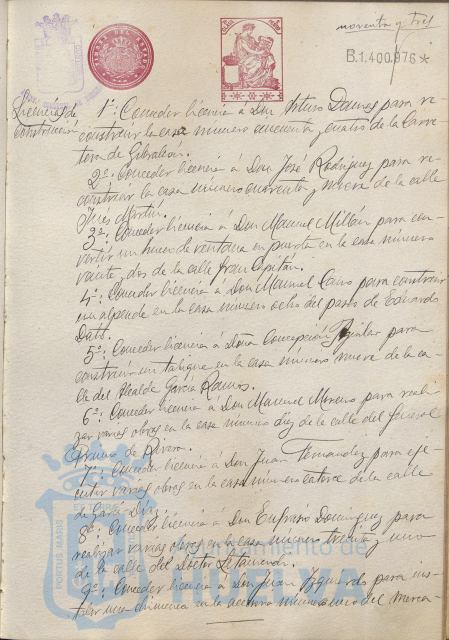 noventa y tres
B.1.400.976*
Licencias de
construcción
1º: Conceder licencia á Don Arturo Daunes para re-
construir la casa número cincuenta y cuatro de la Carre-
tera de Gibraleón.
2º: Conceder licencia á Don José Rodríguez para re-
construir la casa número cuarenta y nueve de la calle
Inés Martín.
3º: Conceder licencia á Don Manuel Millán para con-
vertir un hueco de ventana en puerta en la casa número
veinte y dos de la calle Gran Capitán.
4º: Conceder licencia á Don Manuel Cano para construir
un alpende en la casa número ocho del paseo de Eduardo
Dato.
5º: Conceder licencia á Doña Concepción Aguilar para
construir un tabique en la casa número nueve de la ca-
lle del Alcalde García Ramos.
6º: Conceder licencia á Don Manuel Moreno para reali-
zar varias obras en la casa número diez de la calle del General
Primo de Rivera.
7º: Conceder licencia á Don Juan Fernández para eje-
cutar varias obras en la casa número catorce de la calle
de García Díaz.
8º: Conceder licencia á Don Eufrasio Domínguez para
realizar varias obras en la casa número treinta y uno
de la calle del Doctor Letamendi.
9º: Conceder licencia á Don Juan Izquierdo para ins-
talar una chimenea en la número uno del Merca-
Ayuntamiento de
HUELVA
PORTUS MARIS